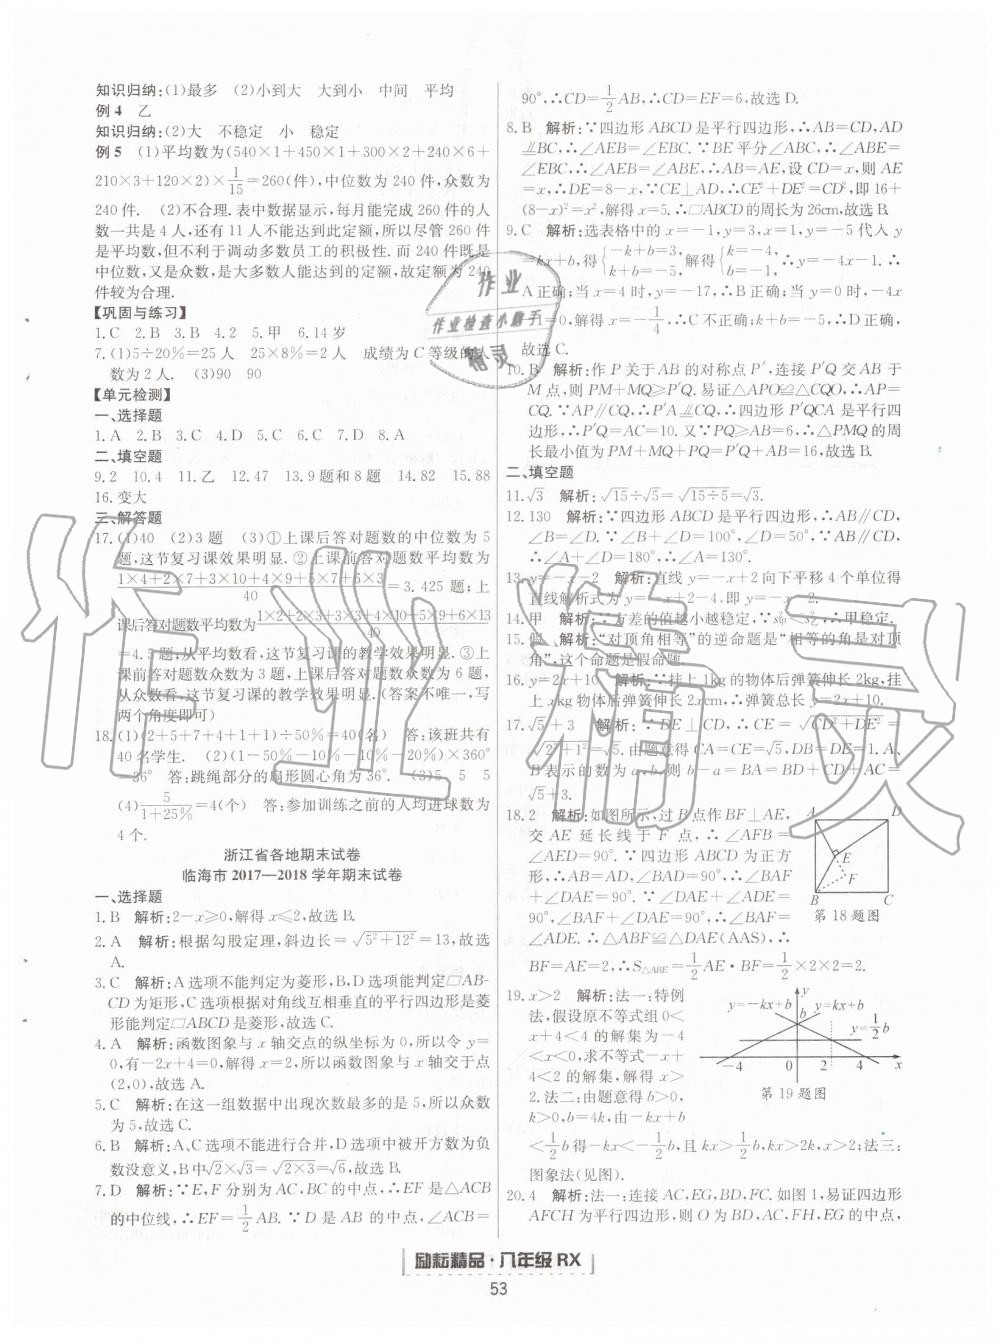 知识归纳:(1)最多 (2)小到大 大到小 中间 平均
例 4 乙
知识归纳:(2)大 不稳定 小 稳定
例 5 (1)平均数为(540×1+450×1+300×2+240×6+
210×3+120×2)×1/15=260(件),中位数为 240 件,众数为
240 件. (2)不合理.表中数据显示,每月能完成 260 件的人
数一共是 4 人,还有 11 人不能达到此定额,所以尽管 260 件
是平均数,但不利于调动多数员工的积极性.而 240 件既是
中位数,又是众数,是大多数人能达到的定额,故定额为 240
件较为合理.
【巩固与练习】
1.C 2.B 3.B 4.2 5.甲 6.14 岁
7.(1)5÷20%=25 人 25×8%=2 人 成绩为 C 等级的人
数为 2 人. (3)90 90
【单元检测】
一、选择题
1.A 2.B 3.C 4.D 5.C 6.D 7.C 8.A
二、填空题
9.2 10.4 11.乙 12.47 13.9 题和 8 题 14.82 15.88
16.变大
三、解答题
17.(1)40 (2)3 题 (3)①上课后答对题数的中位数为 5
题,这节复习课效果明显.②上课前答对题数平均数为
(1×4+2×7+3×10+4×9+5×7+6×3)/40=3.425 题;上
课后答对题数平均数为(1×2+2×3+3×3+4×10+5×9+6×13)/40
=4.5 题,从平均数看,这节复习课的教学效果明显.③上
课前答对题数众数为 3 题,上课后答对题数众数为 6 题,
从众数看,这节复习课的教学效果明显.(答案不唯一,写
两个角度即可)
18.(1)(2+5+7+4+1+1)÷50%=40(名) 答:该班共有
40 名学生. (2)(1-50%-10%-10%-20%)×360°
=36° 答:跳绳部分的扇形圆心角为 36°. (3)5 5 5
(4)5/(1+25%)=4(个) 答:参加训练之前的人均进球数为
4 个.
浙江省各地期末试卷
临海市 2017—2018 学年期末试卷
一、选择题
1.B 解析:2-x≥0,解得 x≤2,故选 B.
2.A 解析:根据勾股定理,斜边长=√(5²+12²)=13,故选
A.
3.C 解析:A 选项不能判定为菱形,B,D 选项能判定▱AB-
CD 为矩形,C 选项根据对角线互相垂直的平行四边形是菱
形能判定▱ABCD 是菱形,故选 C.
4.A 解析:函数图象与 x 轴交点的纵坐标为 0,所以令 y=
0,有-2x+4=0,解得 x=2,所以函数图象与 x 轴交于点
(2,0),故选 A.
5.C 解析:在这一组数据中出现次数最多的是 5,所以众数
为 5,故选 C.
6.B 解析:A,C 选项不能进行合并,D 选项中被开方数为负
数没意义,B 中√2×√3=√(2×3)=√6,故选 B.
7.D 解析:∵E,F 分别为 AC,BC 的中点,∴EF 是△ACB
的中位线,∴EF=1/2 AB.∵D 是 AB 的中点,∠ACB=
90°,∴CD=1/2 AB,∴CD=EF=6,故选 D.
8.B 解析:∵四边形 ABCD 是平行四边形,∴AB=CD,AD
⫽BC,∴∠AEB=∠EBC.∵BE 平分∠ABC,∴∠ABE=
∠EBC,∴∠AEB=∠ABE,∴AB=AE,设 CD=x,则 AE
=x,∴DE=8-x,∵CE⊥AD,∴CE²+DE²=CD²,即 16+
(8-x)²=x²,解得 x=5.∴▱ABCD 的周长为 26cm,故选 B.
9.C 解析:选表格中的 x=-1,y=3,x=1,y=-5 代入 y
=kx+b,得{-k+b=3, k+b=-5, 解得{k=-4, b=-1, ∴y=-4x-1.∴
A 正确;当 x=4 时,y=-17,∴B 正确;当 y=0 时,-4x
-1=0,解得 x=-1/4,∴C 不正确;k+b=-5,∴D 正确,
故选 C.
10.B 解析:作 P 关于 AB 的对称点 P′,连接 P′Q 交 AB 于
M 点,则 PM+MQ≥P′Q.易证△APO≌△CQO,∴AP=
CQ.∵AP∥CQ,∴P′A⫽CQ,∴四边形 P′QCA 是平行四
边形,∴P′Q=AC=10.又∵PQ≥AB=6,∴△PMQ 的周
长最小值为 PM+MQ+PQ=P′Q+AB=16,故选 B.
二、填空题
11.√3 解析:√15÷√5=√(15÷5)=√3.
12.130 解析:∵四边形 ABCD 是平行四边形,∴AB∥CD,
∠B=∠D.∵∠B+∠D=100°,∠D=50°.∵AB∥CD,
∴∠A+∠D=180°,∴∠A=130°.
13.y=-x-2 解析:直线 y=-x+2 向下平移 4 个单位得
直线解析式为 y=-x+2-4,即 y=-x-2.
14.甲 解析:∵方差的值越小越稳定,∵s²甲<s²乙,∴甲稳定.
15.假 解析:“对顶角相等”的逆命题是“相等的角是对顶
角”,这个命题是假命题.
16.y=2x+10 解析:∵挂上 1kg 的物体后弹簧伸长 2kg,挂
上 xkg 物体后弹簧伸长 2xcm,∴弹簧总长 y=2x+10.
17.√5+3 解析:∵DE⊥CD,∴CE=√(CD²+DE²)=
√(2²+1²)=√5.由题意得 CA=CE=√5,BD=DE=1.A、
B 表示的数为 a、b.则 b-a=BA=BD+CD+AC=
√5+3.
18.2 解析:如图所示,过 B 点作 BF⊥AE,
交 AE 延长线于 F 点,∴∠AFB=
∠AED=90°.∵四边形 ABCD 为正方
形,∴AB=AD,∠BAD=90°,∴∠BAF
+∠DAE=90°.∵∠ADE+∠DAE=
90°,∠BAF+∠DAE=90°,∴∠BAF=
∠ADE.∴△ABF≌△DAE(AAS),∴
BF=AE=2,∴S△ABE=1/2 AE·BF=1/2×2×2=2.
A D E F B C
第 18 题图
19.x>2 解析:法一:特例
法,假设原不等式组 0<
x+4<4 的解集为-4
<x<0,求不等式-x+
4<2 的解集,解得 x>
2.法二:由题意得 b>0,
k>0,b=4k,由-kx+b
<1/2 b 得-kx<-1/2 b,且 kx>1/2 b,kx>2k,x>2;法三:
图象法(见图).
y y=-kx+b y=kx+b b y=1/2 b -4 0 2 4 x
第 19 题图
20.4 解析:法一:连接 AC,EG,BD,FC.如图 1,易证四边形
AFCH 为平行四边形,则 O 为 BD,AC,FH,EG 的中点,
励耘精品·八年级 RX
53
作业
作业检查小帮手
精灵
作业精灵